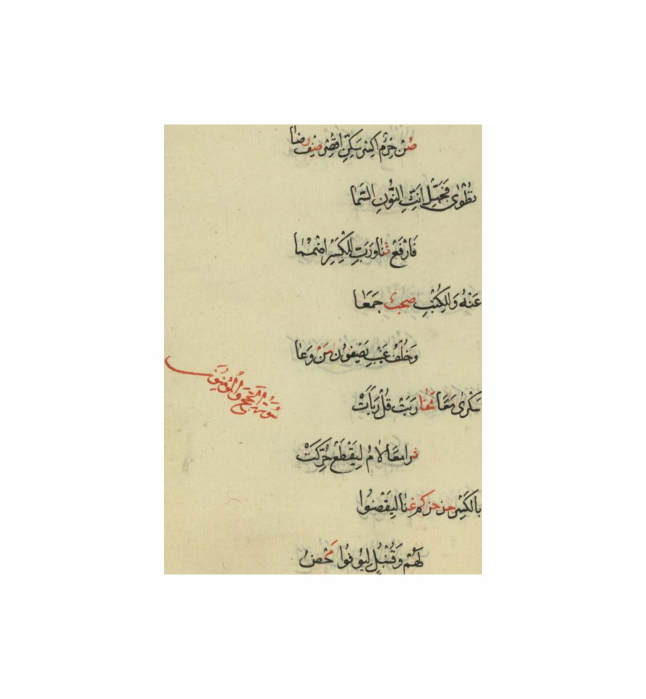 صن حرم اكسر سكن اقصر صف رضا
نطوى فجهل انث النون السما
فارفع ثنا ورب للكسر اضمما
عنه وللكتب صحب جمعا
وخلف غيب يصفون من وعا
سورة الحج والمؤمنون
سكرى معا شفا ربت قل ربأت
ثرا معا لام ليقطع حركت
بالكسر جد حز كم غنا ليقضوا
لهم وقنبل ليوفوا محض